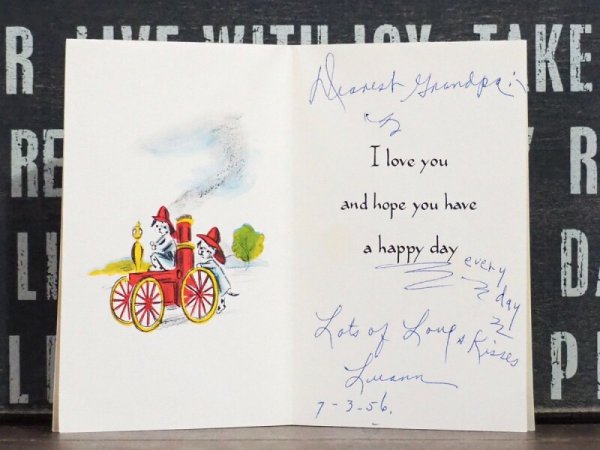 R LIVE WITH JOY TAKE
Dearest Grandpa:
I love you
and hope you have
a happy day
every
day
Lots of Love & Kisses
Lueann
7-3-56.